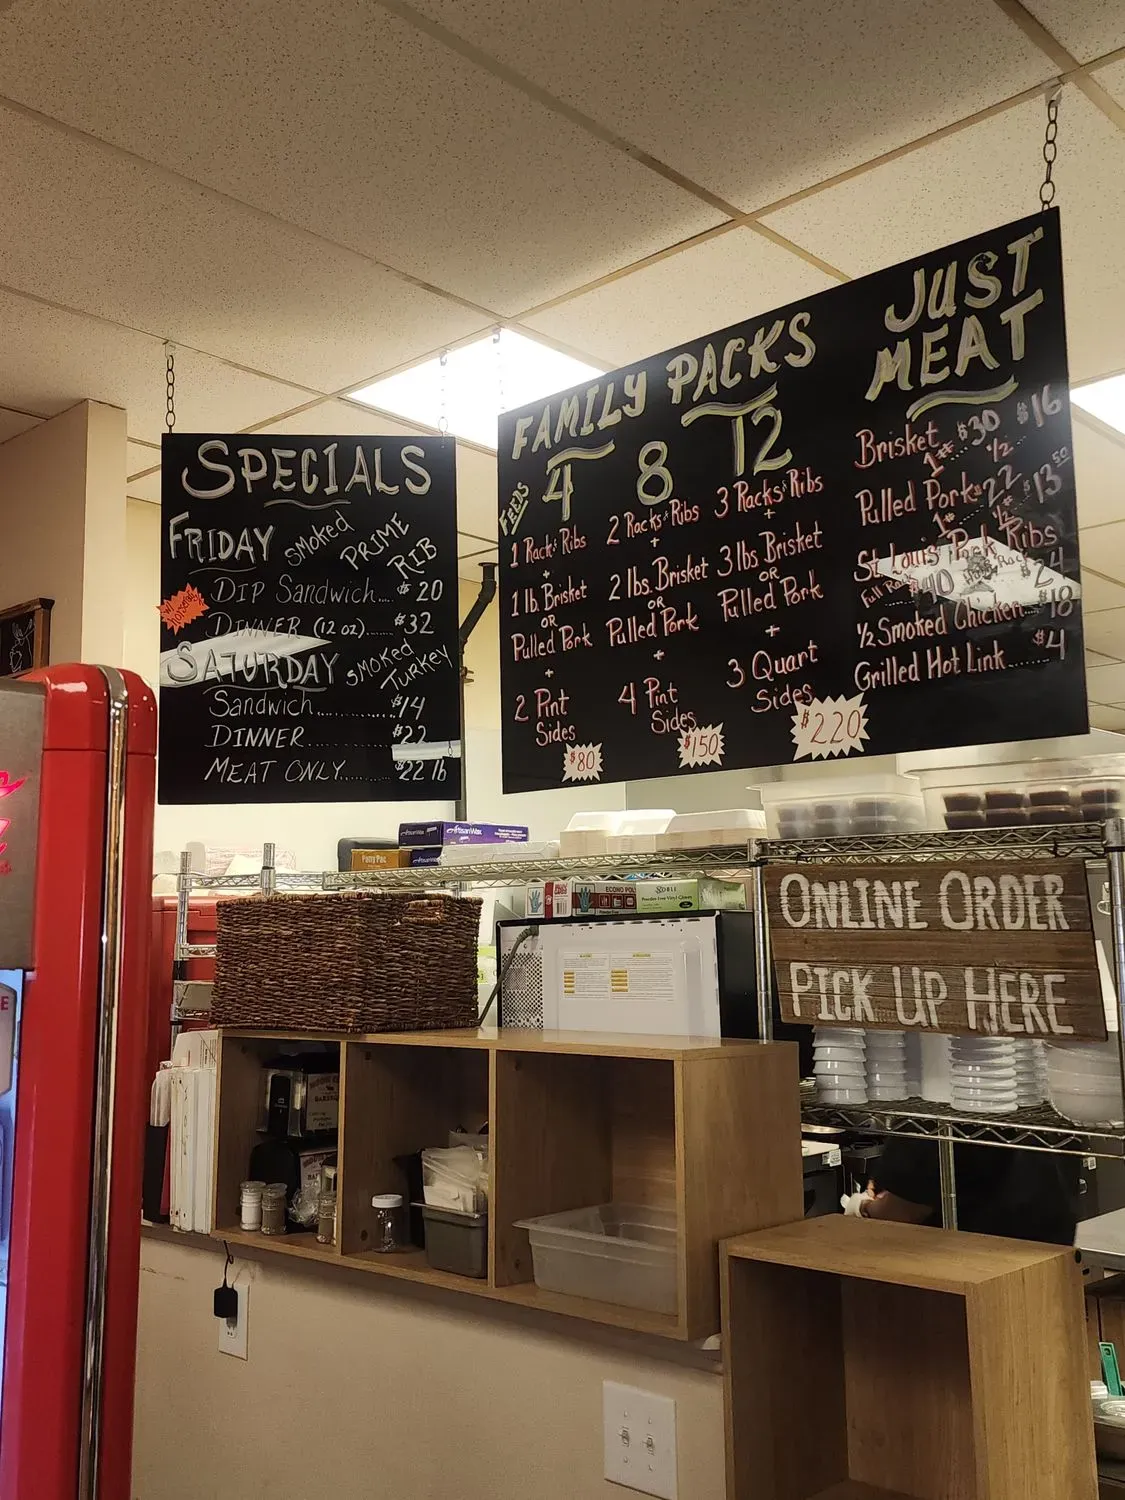 SPECIALS
FRIDAY SMOKED PRIME RIB
DIP SANDWICH.... $20
DINNER (12 oz)...... $32
SATURDAY SMOKED TURKEY
SANDWICH.............. $14
DINNER ............... $22
MEAT ONLY......... $22 lb
FAMILY PACKS
FEEDS 4
1 Rack Ribs
+
1 lb. Brisket
OR
Pulled Pork
+
2 Pint
Sides
$80
8
2 Racks Ribs
+
2 lbs. Brisket
OR
Pulled Pork
+
4 Pint
Sides
$150
12
3 Racks Ribs
+
3 lbs Brisket
OR
Pulled Pork
+
3 Quart
Sides
$220
JUST
MEAT
Brisket
1# $30 1/2 $16
Pulled Pork
1# $22 1/2# $13.50
St. Louis Pork Ribs
Full Rack $40 Half Rack
1/2 Smoked Chicken
Grilled Hot Link........ $4
ArtisanWax
Party Pac
ECONO POLY
NOBLE
Powder-Free Vinyl Gloves
ONLINE ORDER
PICK UP HERE